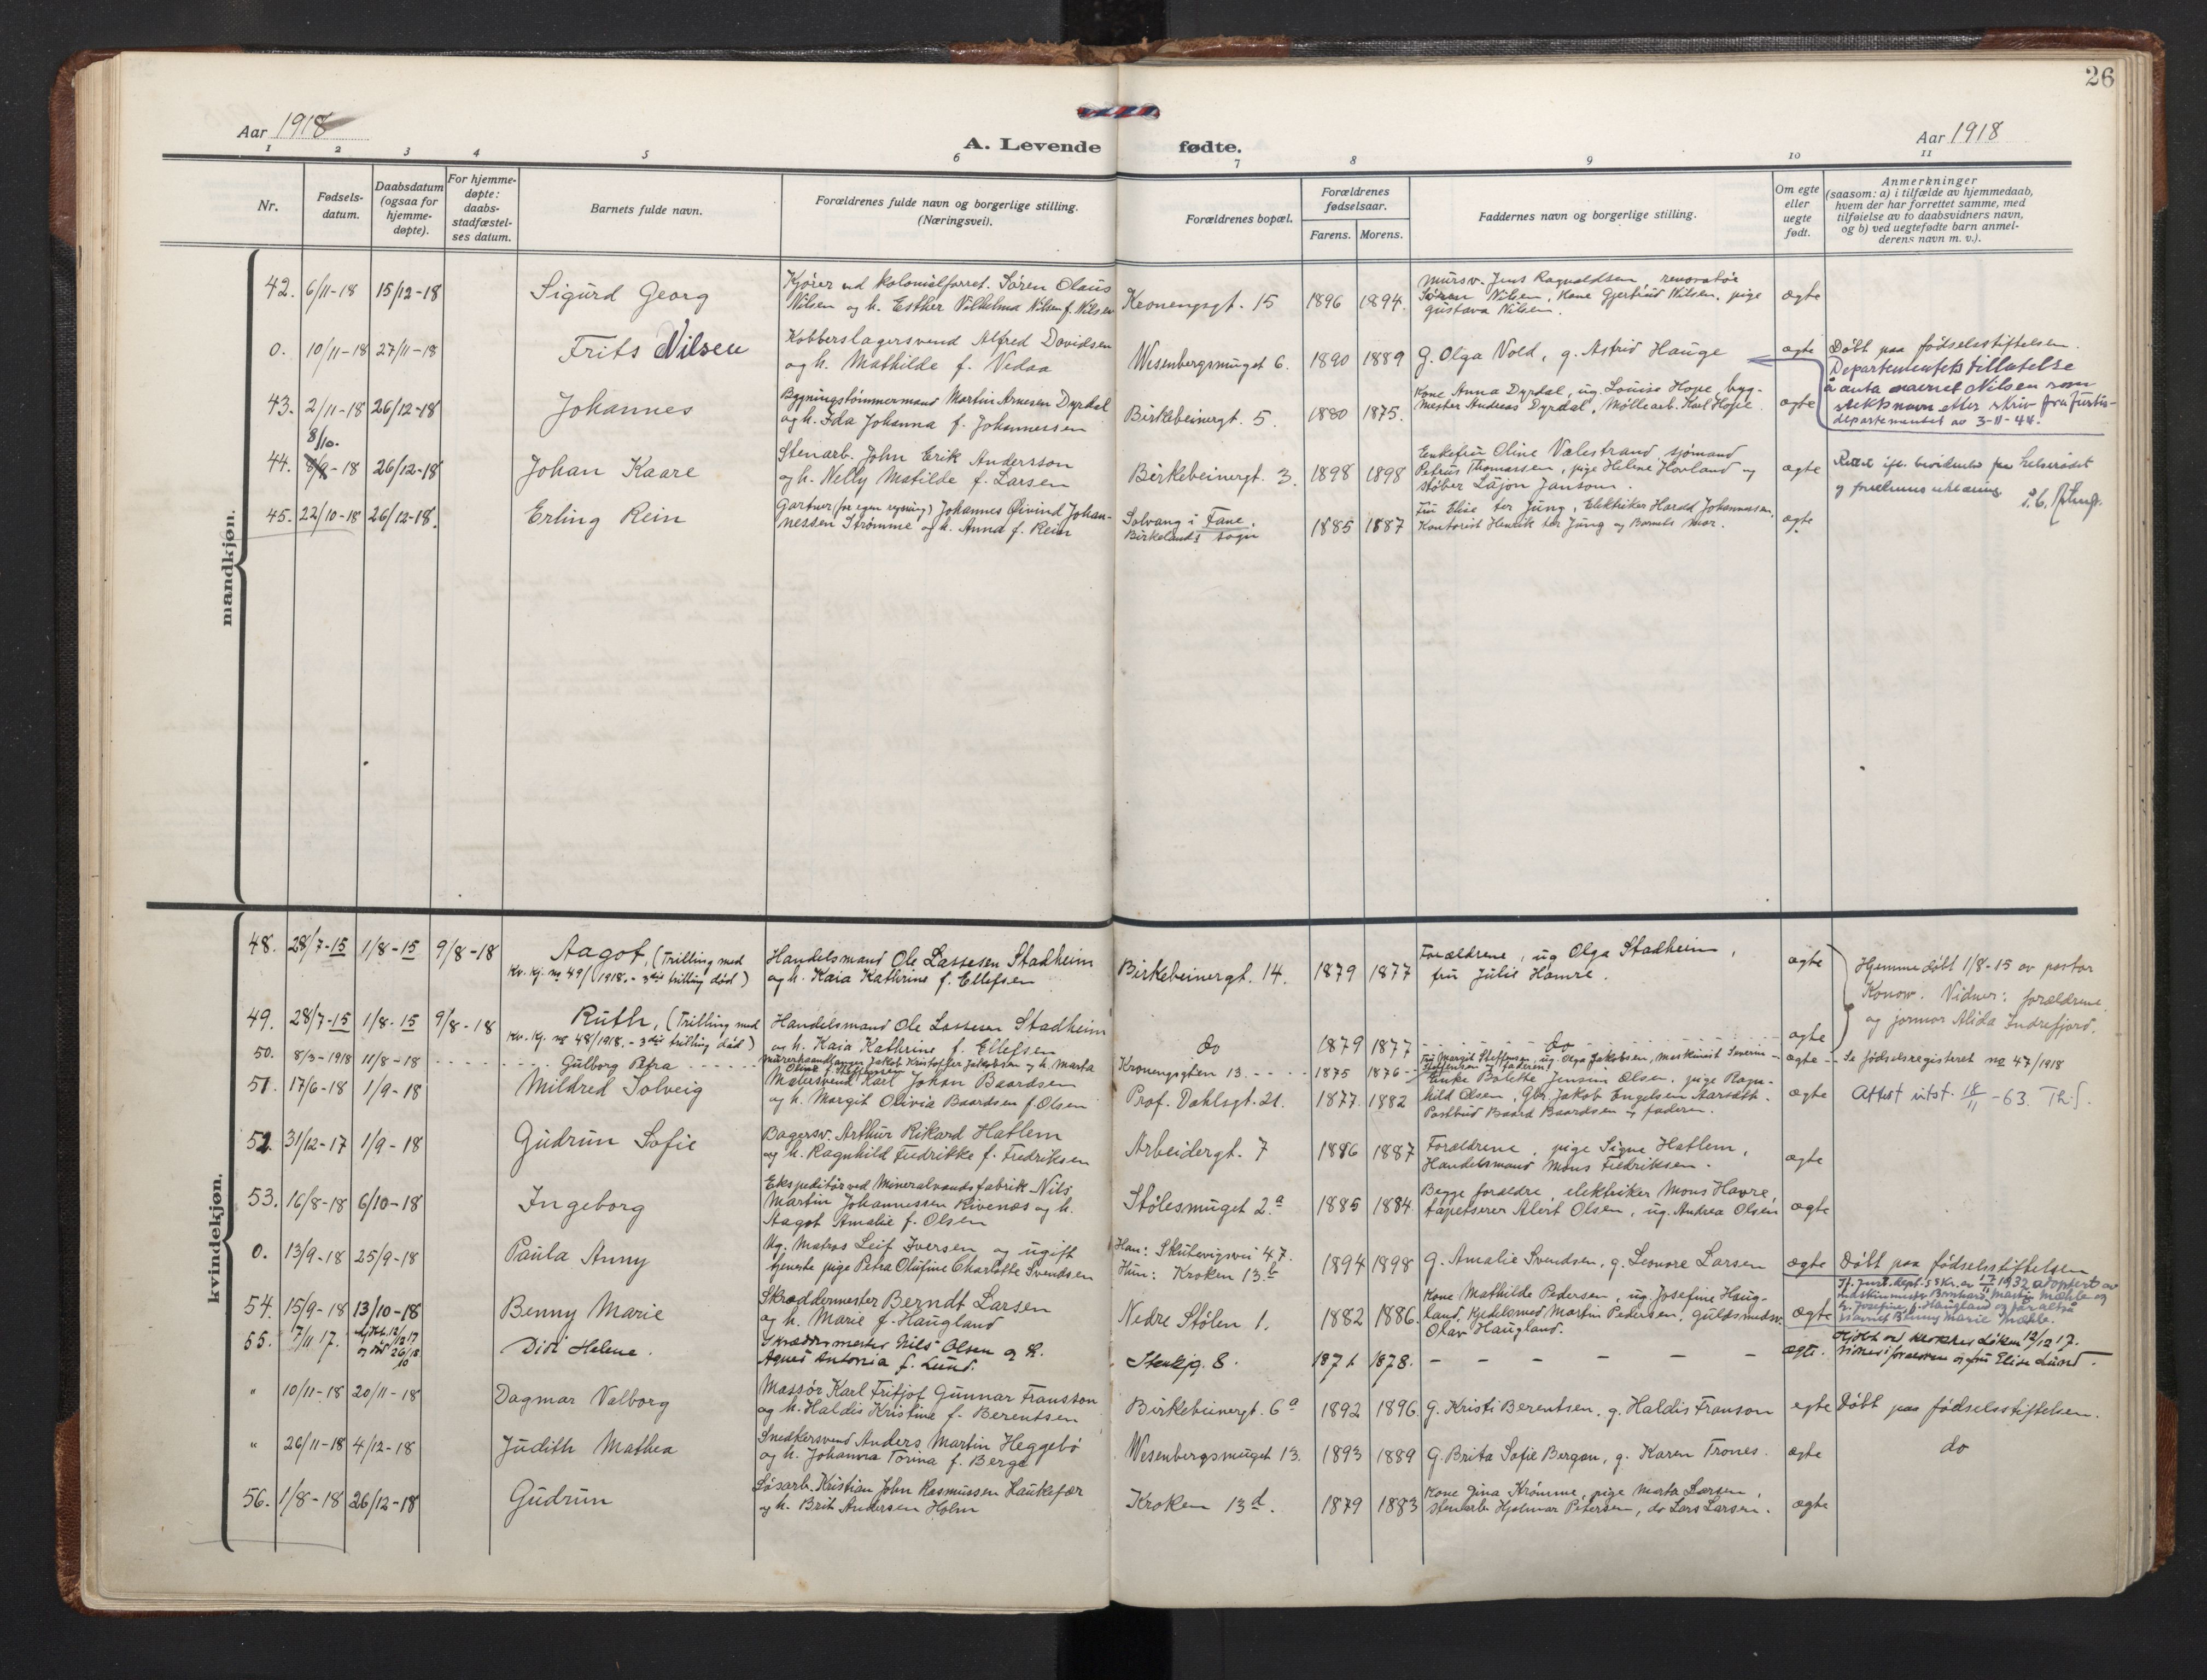 26
Aar 1918
A. Levende fødte.
Aar 1918
1 2 3 4 5 6 7 8 9 10 11
Nr.
Fødsels-
datum.
Daabsdatum
(ogsaa for
hjemme-
døpte).
For hjemme-
døpte:
daabs-
stadfæstel-
ses datum.
Barnets fulde navn.
Forældrenes fulde navn og borgerlige stilling.
(Næringsvei).
Forældrenes bopæl.
Forældrenes
fødselsaar.
Farens. Morens.
Faddernes navn og borgerlige stilling.
Om egte
eller
uegte
født.
Anmerkninger
(saasom: a) i tilfælde av hjemmedaab,
hvem der har forrettet samme, med
tilføielse av to daabsvidners navn,
og b) ved uegtefødte barn anmel-
derens navn m. v.).
mandkjøn.
42. 6/11-18 15/12-18 Sigurd Georg
Kjører ved kolonialforret. Søren Olaus
Nilsen og h. Esther Vilhelmna Nilsen f. Nilsen
Kronengsgt. 15 1896 1894.
Mursv. Jens Ragnvaldsen, renovatør
Søren Nilsen, Kone Gjertrud Nilsen, pige
Gustava Nilsen.
ægte
0. 10/11-18 27/11-18 Frits Nilsen
Kobberslagersvend Alfred Davidsen
og h. Mathilde f. Vedaa
Wesenbergsmuget 6. 1890 1889 G. Olga Vold, g. Astrid Hauge
ægte Døbt paa fødselsstiftelsen.
Departementets tillatelse
å anta navnet Nilsen som
slektsnavn etter skriv fra Justis-
departementet av 3-11-44.
43. 2/11-18 26/12-18 Johannes
Bygningstømmermand Martin Arnesen Dyrdal
og h. Ida Johanna f. Johannessen
Birkebeinergt. 5. 1880 1875.
Kone Anna Dyrdal, ug. Louise Hope, byg-
mester Andreas Dyrdal, Møllearb. Karl Hope
ægte
8/10.
44. 8/9-18 26/12-18 Johan Kaare
Stenarb. John Erik Andersson
og h. Nelly Matilde f. Larsen
Birkebeinergt. 3. 1898 1898
Enkefru Oline Valestrand, sjømand
Petrus Thomassen, pige Helene Hovland og
støber Lajon Janson.
ægte
45. 22/10-18 26/12-18. Erling Rein
Gartner (for egen regning) Johannes Øivind Johan-
nessen Strømme og h. Anna f. Rein
Solvang i Fane.
Birkelands sogn
1885 1887
Fru Elise ter Jung, Elektriker Harald Johannessen,
Kontorist Henrik ter Jung og Barnets mor.
ægte
kvindekjøn.
48. 28/7-15 1/8-15 9/8-18 Aagot, (Trilling med
Kv. kj. no 49/1918. - 3die trilling død)
Handelsmand Ole Lassesen Stadheim
og h. Kaia Kathrine f. Ellefsen
Birkebeinergt. 14. 1879 1877
Forældrene, ug Olga Stadheim,
fru Julie Hamre.
ægte
Hjemmedøbt 1/8-15 av pastor
Konow. Vidner: forældrene
og jormor Alida Indrefjord.
49. 28/7-15 1/8-15 9/8-18 Ruth, (Trilling med
Kv. Kj. no 48/1918. - 3die trilling død)
Handelsmand Ole Lassesen Stadheim
og h. Kaia Kathrine f. Ellefsen
do 1879 1877 do ægte
50. 8/3-1918 11/8-18 Gulborg Petra
Murerhaandlanger Jakob Kristoffer Jakobsen og h. Marta
Oline f. Steffensen
Kronengsgten 13. 1875 1876
Fru Margit Steffensen, ug. Olga Jakobsen, maskinist Severin
Steffensen og faderen
ægte Se fødselsregisteret no 47/1918
51. 17/6-18 1/9-18 Mildred Solveig
Malersvend Karl Johan Baardsen
og h. Margit Olivia Baardsen f. Olsen
Prof. Dahlsgt. 21. 1877. 1882
Enke Bolette Jensine Olsen, pige Ragn-
hild Olsen, Gbr. Jakob Engelsen Aarsdt.
Postbud Baard Baardsen og faderen.
ægte Attest utst. 18/11 - 63.
52. 31/12-17 1/9-18 Gudrun Sofie
Bagersv. Arthur Rikard Hatlem
og h. Ragnhild Fredrikke f. Fredriksen
Arbeidergt. 7 1886 1887
Forældrene, pige Signe Hatlem,
Handelsmand Mons Fredriksen.
ægte
53. 16/8-18 6/10-18 Ingeborg
Ekspeditør ved Mineralvandsfabrik Nils
Martin Johannessen Rivenes og h.
Aagot Amalie f. Olsen
Stølesmuget 2.a 1885 1884
Begge forældre, elektriker Mons Havre,
tapetserer Alert Olsen, ug. Andrea Olsen
ægte
0. 13/9-18 25/9-18 Paula Anny
Ug. Matros Leif Iversen og ugift
tjeneste pige Petra Olufine Charlotte Svendsen
Han: Skutevigsvei 47.
Hun: Kroken 13.b
1894 1898 G. Amalie Svendsen, g. Leonore Larsen
ægte Døbt paa fødselsstiftelsen
54. 15/9-18 13/10-18 Benny Marie
Skræddermester Berndt Larsen
og h. Marie f. Haugland
Nedre Stølen 1. 1882 1886.
Kone Mathilde Pedersen, ug. Josefine Haug-
land, Kjedelsmed Martin Pedersen, Guldsmedsv.
Olav Haugland.
ægte
55. 7/11 17. Didi Helene.
Skræddermester Nils Olsen og h.
Agnes Antonia f. Lund.
Stenkjg. 8. 1871 1878. - - - - - - ægte.
" 10/11-18 20/11-18 Dagmar Valborg
Massør Karl Fritjof Gunnar Fransson
og h. Haldis Kristine f. Berentsen
Birkebeinergt. 6a 1892 1896. G. Kristi Berentsen, g. Haldis Franson
egte Døbt paa fødselsstiftelsen.
" 26/11-18 4/12-18 Judith Mathea
Snedkersvend Anders Martin Heggebø
og h. Johanna Torina f. Berge
Wesenbergsmuget 13. 1893 1889 G. Brita Sofie Bergan, g. Karen Trones.
ægte do
56. 1/8-18 26/12-18 Gudrun
Løsarb. Kristian John Rasmussen Haukefær
og h. Brit Andersen Holm
Kroken 13d. 1879 1883
Kone Gina Krømme, pige Marta Larsen,
stenarb. Hjalmar Petersen, do Lars Larsen.
ægte